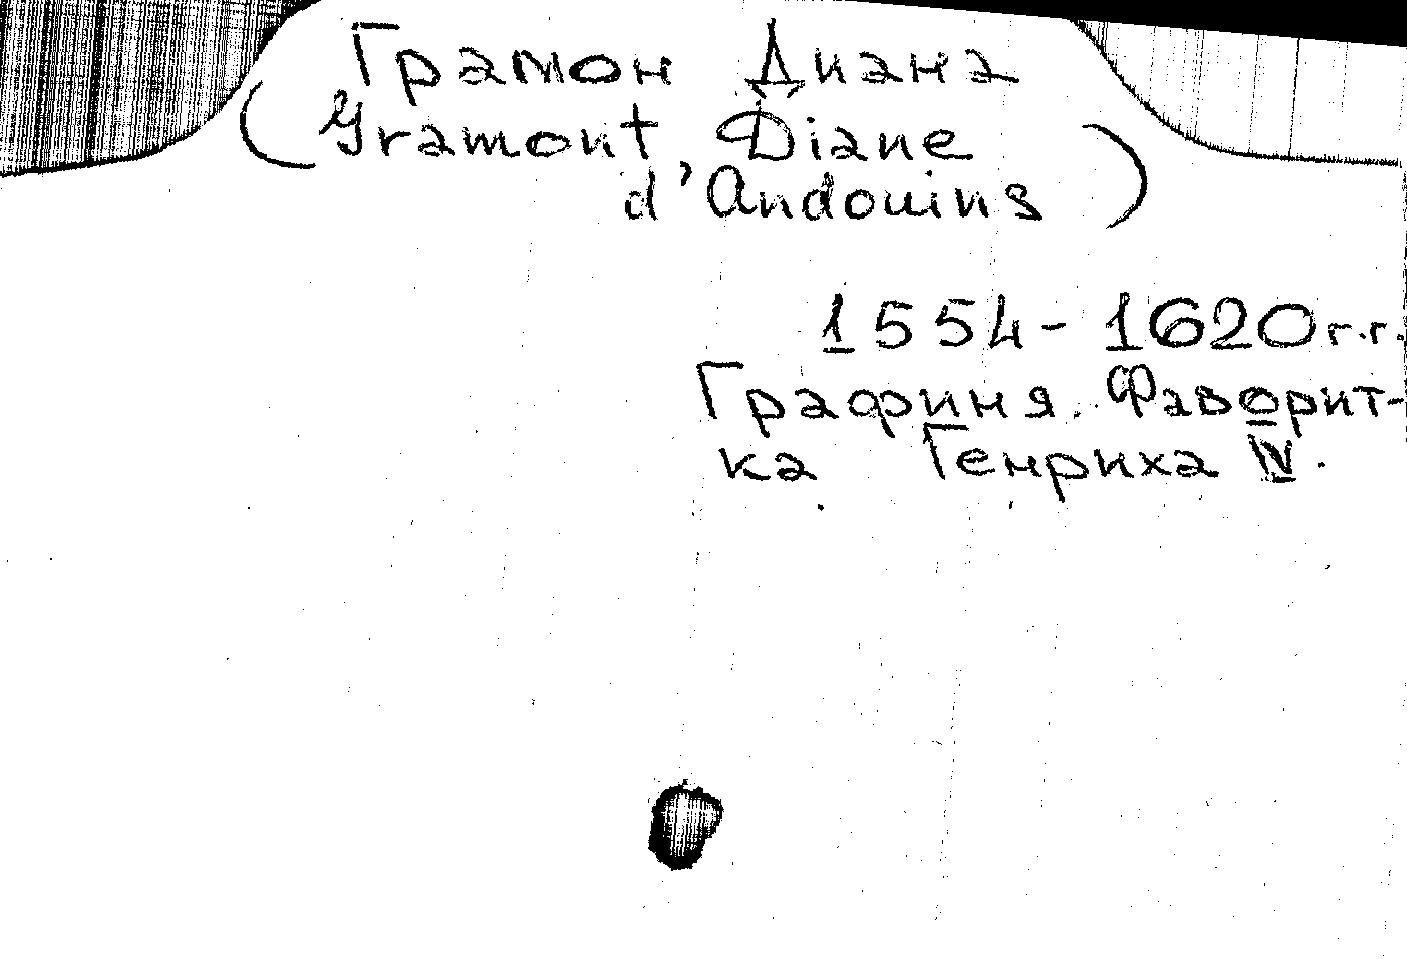 Грамон Диана
(Gramont, Diane
d'Andouins)
1554-1620 г.г.
Графиня. Фаворит-
ка Генриха IV.